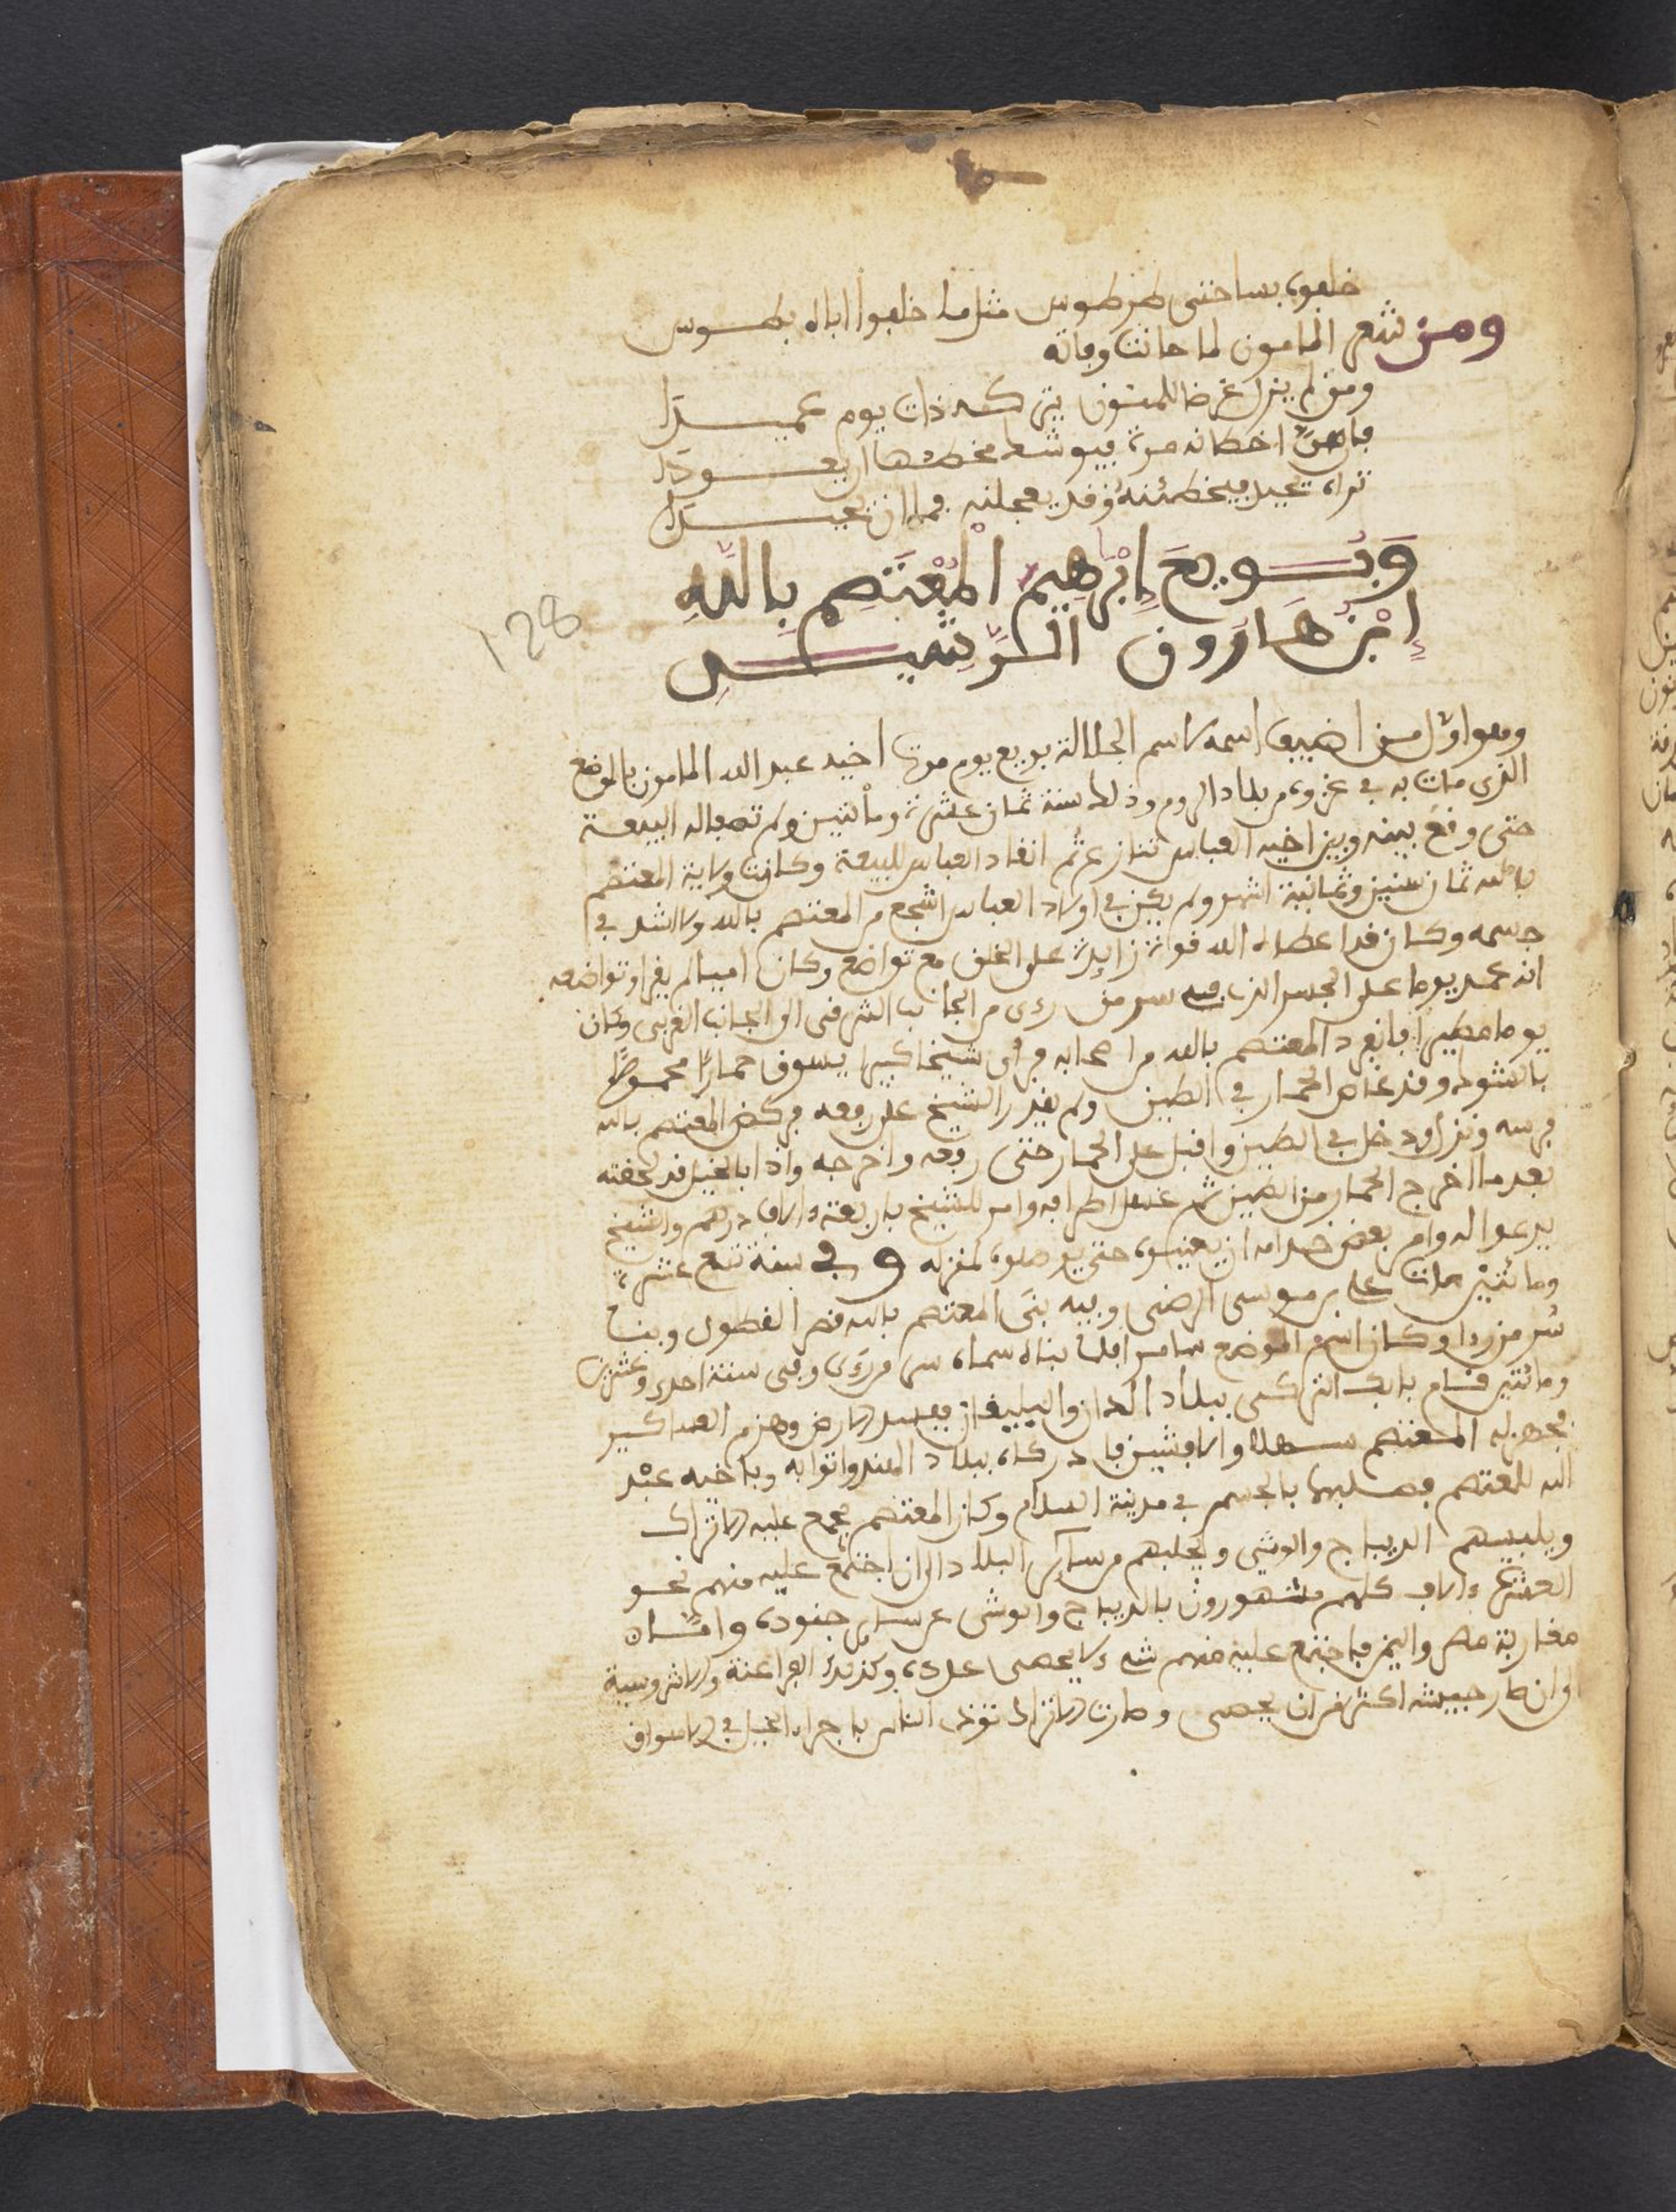 خلفوه بساحتى طرطوس مثل ما خلفوا اباه بطوس
ومن شعر المامون لما حانت وفاته
ومن لم يزل غرضا للمنون يتركنه ذات يوم عميدا
فإن هن اخطانه مرة فيوشك مخطئها ان يعودا
تراه يحيد فيخطئنه وقد يعجلنه فما ان يحيدا
وَبُويعَ إبْرٰهِيم الْمُعْتَصِم بِاللَّهِ
إبْنُ هَارُون الرَّشِيدِ
128
وهو اول من اضيف اسمه لاسم الجلالة بويع يوم موت اخيه عبد الله المامون بالموضع
الذى مات به فى غزوه من بلاد الروم وذلك سنة ثمان عشرة ومائتين ولم تصف له البيعة
حتى وقع بينه وبين اخيه العباس تنازع ثم انقاد العباس للبيعة وكانت ولاية المعتصم
بالله ثمان سنين وثمانية اشهر ولم يكن فى اولاد العباس اشجع من المعتصم بالله ولا اشد فى
جسمه وكان قد اعطاه الله قوة زايدة على الخلق مع تواضع وكان اميا لم يقرا وتواضعه
انه عمد يوما على الجسر الذى سر من رءى من الجانب الشرقى الى الجانب الغربى وكان
يوما مطيرا فانفرد المعتصم بالله من اصحابه فرأى شيخا كبيرا يسوق حمارًا محموطًا
بالشوك وقد غاص الحمار فى الطين ولم يقدر الشيخ على رفعه فركض المعتصم بالله
فرسه ونزل ودخل فى الطين واقبل على الحمار حتى رفعه واخرجه واذا بالخيل قد لحقته
بعدما اخرج الحمار من الطين ثم غسل اطرافه وامر للشيخ باربعة ءالاف درهم والشيخ
يدعوا له وامر بعض خدامه ان يعينوه حتى يوصلوه لمنزله وفى سنة تسع عشرة
ومائتين مات على بن موسى الرضى وفيه بنى المعتصم بالله قصر القطول وبنا
سر من رءا وكان اسم الموضع سامرا فلما بناه سماه سر من رءى وفى سنة احدى وعشرين
ومائتين قام بابك التركى ببلاد الران والبيلقان يفسد الارض وهزم العساكير
فجهز له المعتصم والافشين فادركاه ببلاد واتوا به وباخيه عبْد
الله للمعتصم فصلبهما بالجسر فى مدينة السلام وكان المعتصم يجمع عليه الاتراك
ويلبسهم الديباج والوشى ويجلبهم من ساير البلاد الى ان اجتمع عليه منهم نحو
العشرة ءالاف كلهم مشهورون بالديباج والوشى عن ساير جنوده وامّا
مغاربة مصر واليمن فاجتمع عليه منهم شىء لا يحصى عدده وكذلك الفراعنة والاشروسية
الى ان صار جيشه اكثر من ان يحصى وصارت الاتراك تؤذى الناس باجراء الخيل فى الاسواق